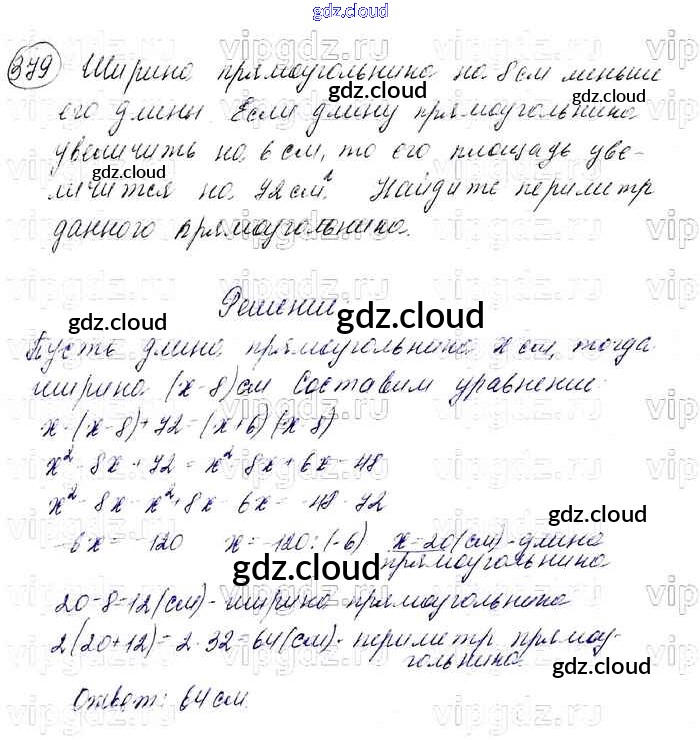 gdz.cloud
379 Ширина прямоугольника на 8 см меньше
его длины. Если длину прямоугольника
увеличить на 6 см, то его площадь уве-
личится на 72 см². Найдите периметр
данного прямоугольника.
Решение
Пусть длина прямоугольника x см, тогда
ширина (x-8) см Составим уравнение:
x·(x-8)+72=(x+6)(x-8)
x²-8x+72=x²-8x+6x-48
x²-8x-x²+8x-6x=-48-72
-6x=-120 x=-120:(-6) x=20(см)-длина
прямоугольника
20-8=12(см)-ширина прямоугольника
2(20+12)=2·32=64(см)-периметр прямоу-
гольника.
Ответ: 64 см.